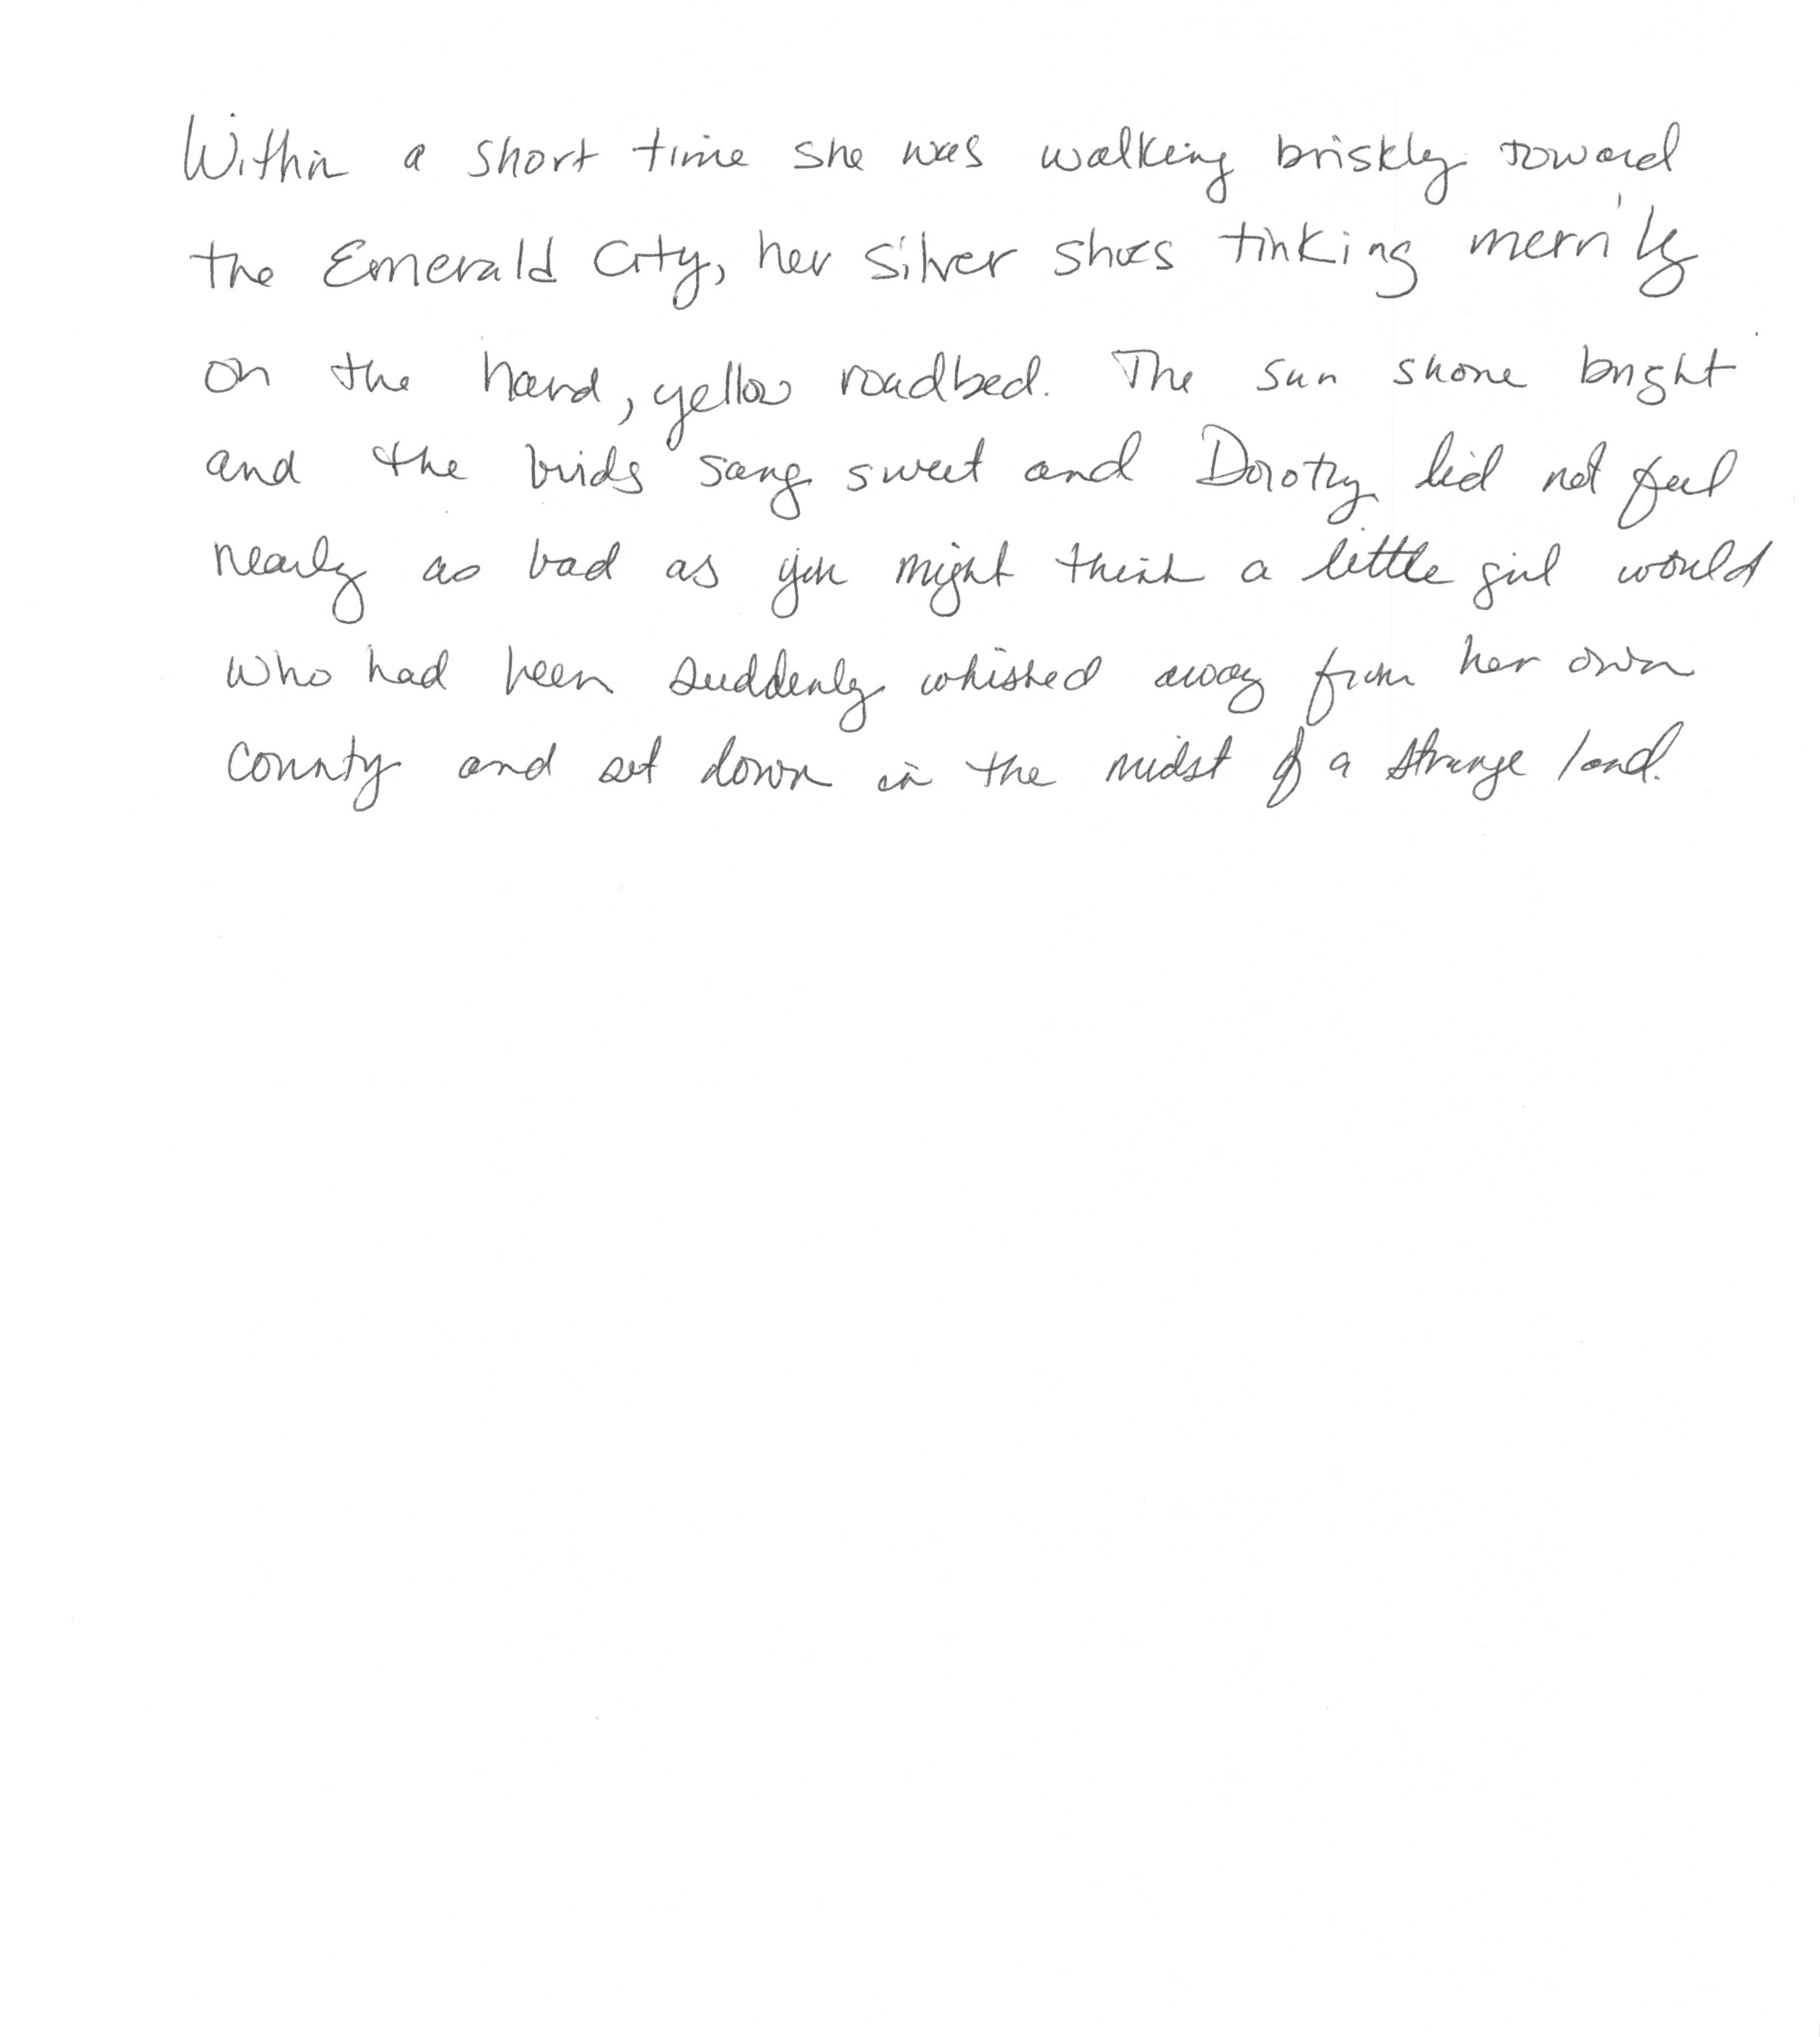 Within a short time she was walking briskly toward
the Emerald City, her silver shoes tinking merrily
on the hard, yellow roadbed. The sun shone bright
and the birds sang sweet and Dorothy did not feel
nearly as bad as you might think a little girl would
who had been suddenly whisked away from her own
country and set down in the midst of a strange land.